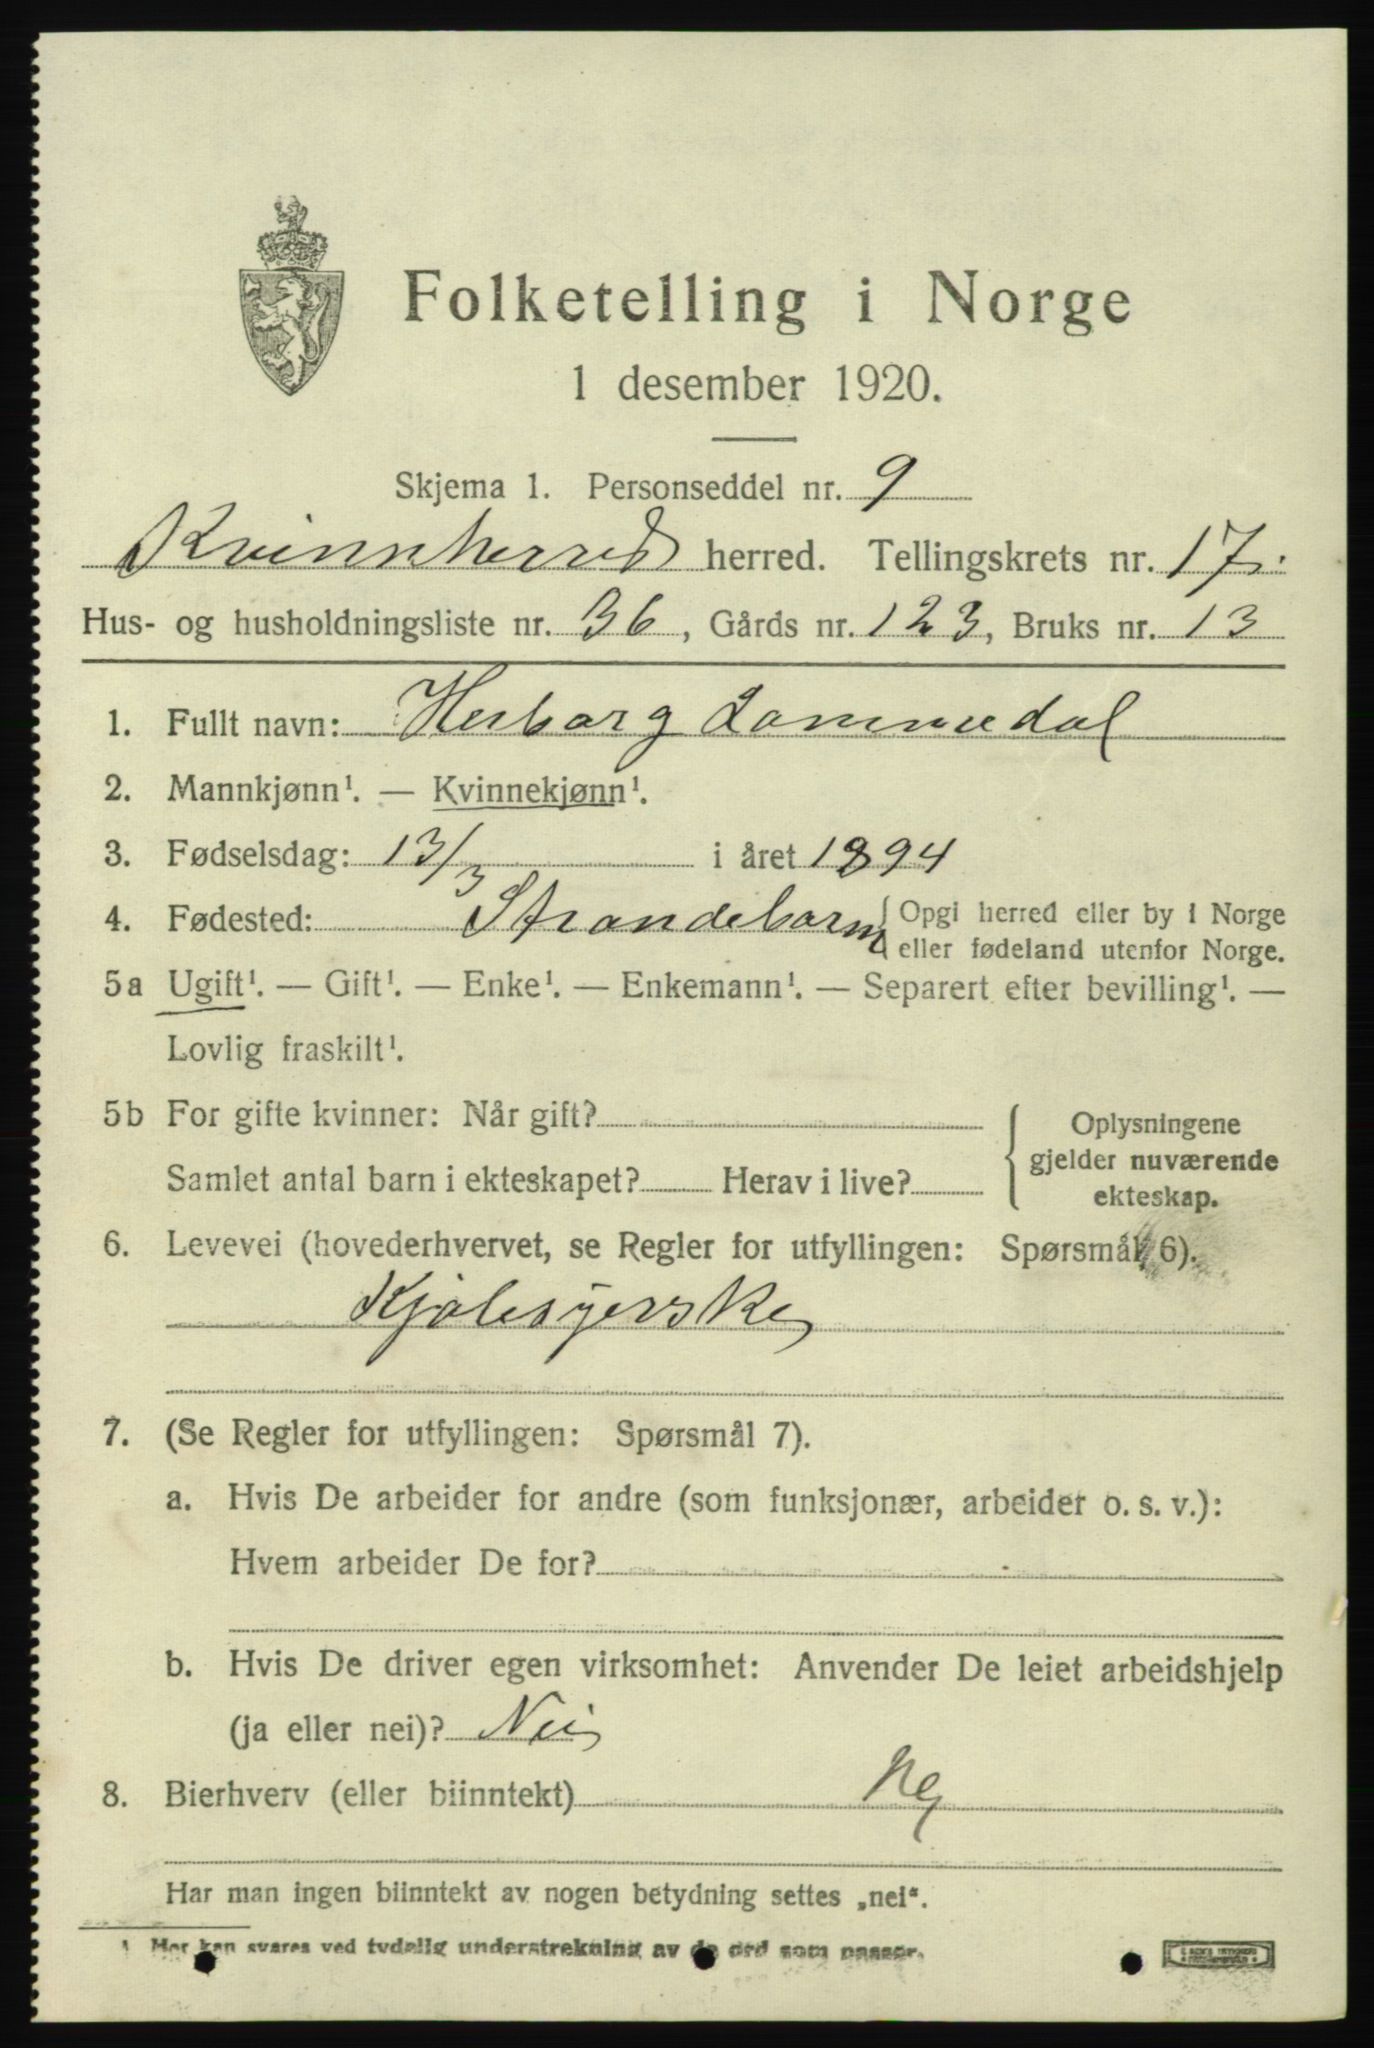 Folketelling i Norge
1 desember 1920.
Skjema 1. Personseddel nr. 9
Kvinnherred herred. Tellingskrets nr. 17.
Hus- og husholdningsliste nr. 36, Gårds nr. 123, Bruks nr. 13
1. Fullt navn: Herborg Lammedal
2. Mannkjønn¹. — Kvinnekjønn¹.
3. Fødselsdag: 13/3 i året 1894
4. Fødested: Strandebarm {Opgi herred eller by i Norge
eller fødeland utenfor Norge.
5a Ugift¹. — Gift¹. — Enke¹. — Enkemann¹. — Separert efter bevilling¹. —
Lovlig fraskilt¹.
5b For gifte kvinner: Når gift?
Samlet antal barn i ekteskapet? Herav i live?
Oplysningene
gjelder nuværende
ekteskap.
6. Levevei (hovederhvervet, se Regler for utfyllingen: Spørsmål 6).
Kjolesyerske
7. (Se Regler for utfyllingen: Spørsmål 7).
a. Hvis De arbeider for andre (som funksjonær, arbeider o. s. v.):
Hvem arbeider De for?
b. Hvis De driver egen virksomhet: Anvender De leiet arbeidshjelp
(ja eller nei)? Nei
8. Bierhverv (eller biinntekt) Nej
Har man ingen biinntekt av nogen betydning settes „nei“.
¹ Her kan svares ved tydelig understrekning av de ord som passer.